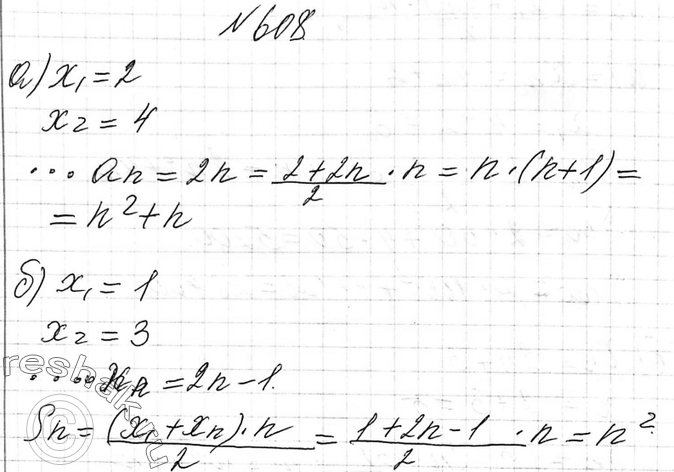 №608.
а) x₁ = 2
x₂ = 4
... an = 2n = (2+2n)/2 · n = n·(n+1) =
= n² + n
б) x₁ = 1
x₂ = 3
.... xn = 2n-1.
Sn = (x₁+xn)·n/2 = (1+2n-1)/2 · n = n².
reshak.ru